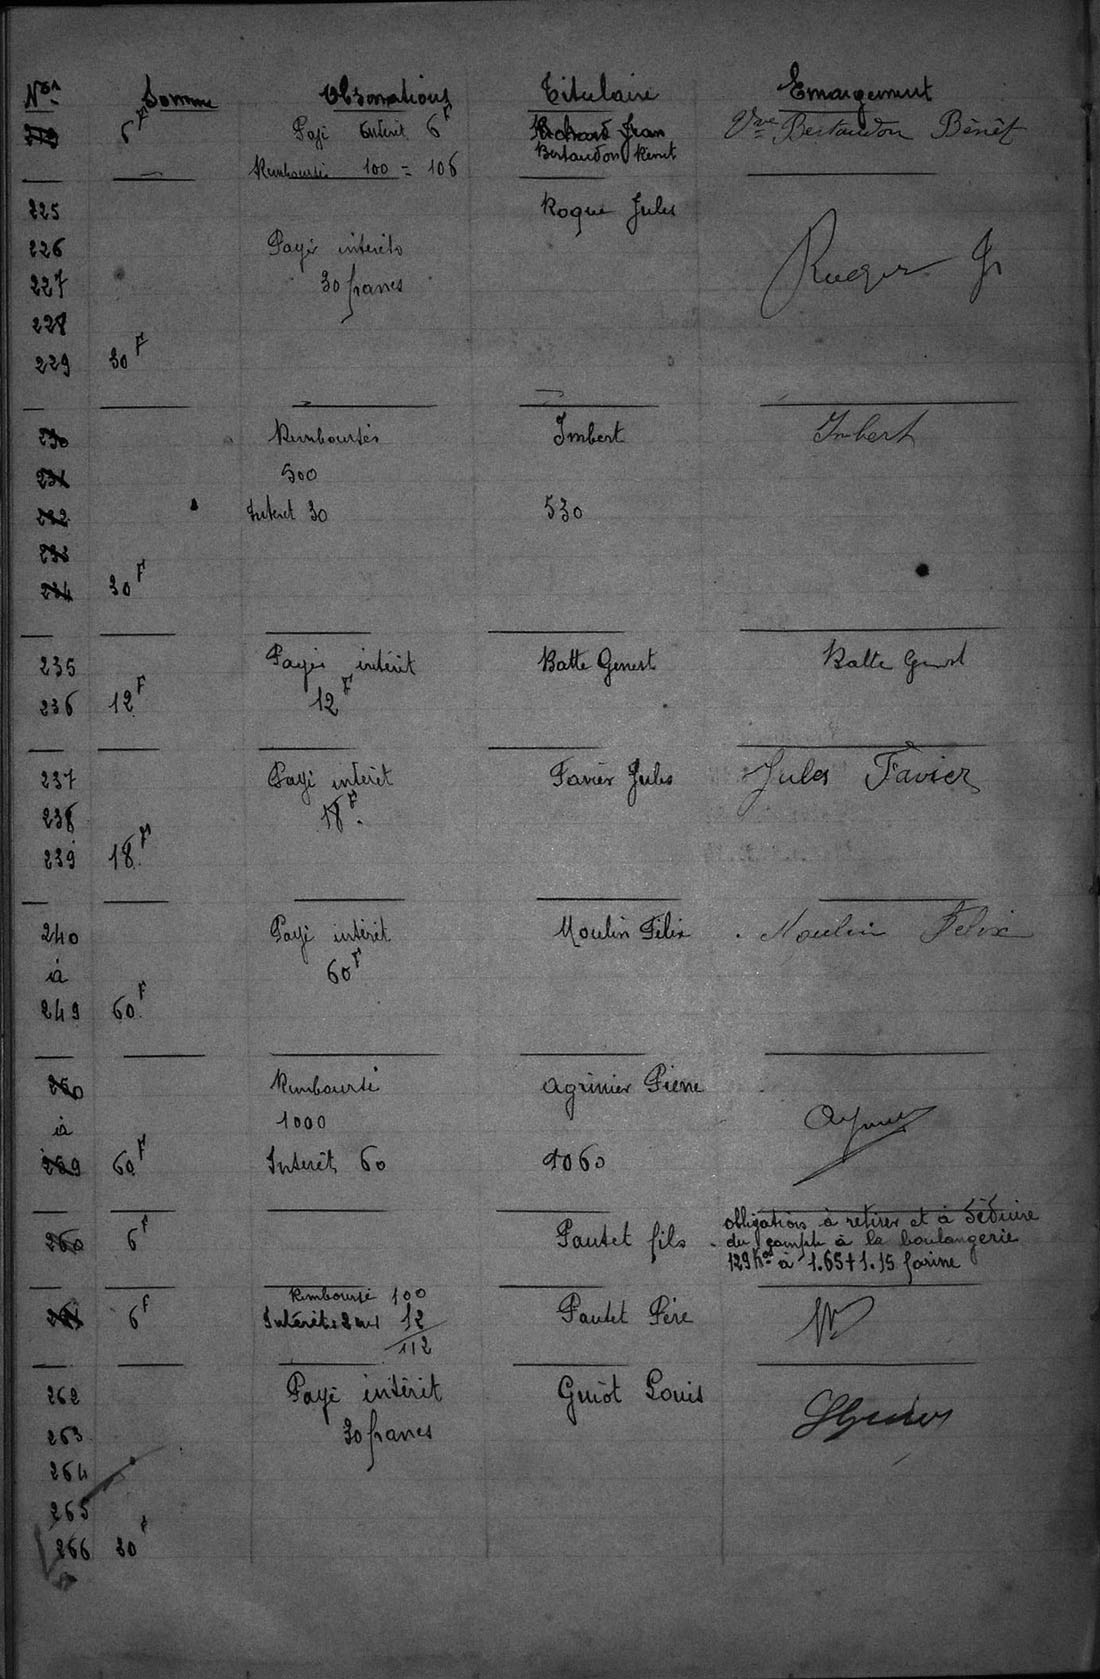 Nos Somme Observations Titulaire Emargement
6F Payé Intérêt 6F Jean Vve Bertaudon Bénêt
Remboursé 100 = 106 Bertaudon Benet
225 Roque Jules
226 Payé intérêts
227 30 francs
228
229 30F
230 Remboursés Imbert Imbert
231 500
232 Intérêt 30 530
233
234 30F
235 Payé intérêt Batte Genest Batte Genest
236 12F 12F
237 Payé intérêt Favier Jules Jules Favier
238 18F.
239 18F
240 Payé intérêt Moulin Félix Moulin Felix
à 60F
249 60F
250 Remboursé Agrinier Pierre
à 1000
259 60F Intérêt 60 1060
260 6F Pautet fils obligation à retirer et à déduire
du compte à la boulangerie
129 Kos à 1.65 + 1.15 farine
Remboursé 100
261 6F Intérêts 2 ans 12 Pautet Père
112
262 Payé intérêt Guiot Louis
263 30 francs
264
265
266 30F